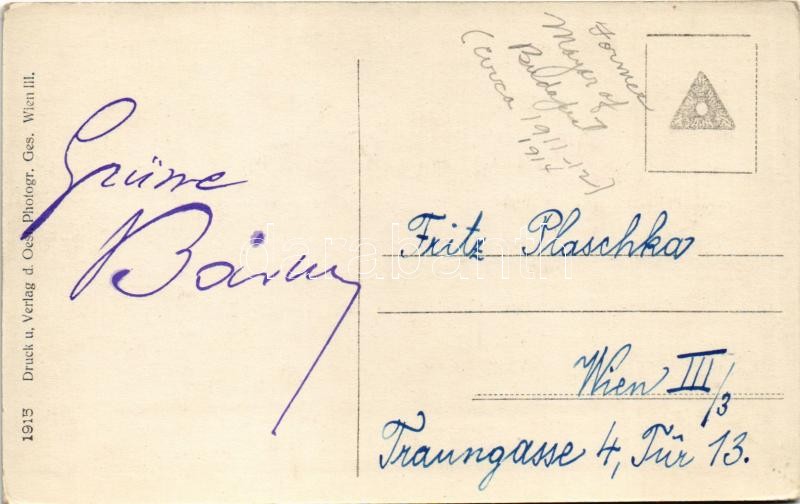 1913 Druck u. Verlag d. Oest. Photogr. Ges. Wien III.
Grüsse
former
Mayor of
Budapest
(circa 1911-12)
1914
Fritz Plaschka
Wien III/3
Traungasse 4, Tür 13.
darabanth